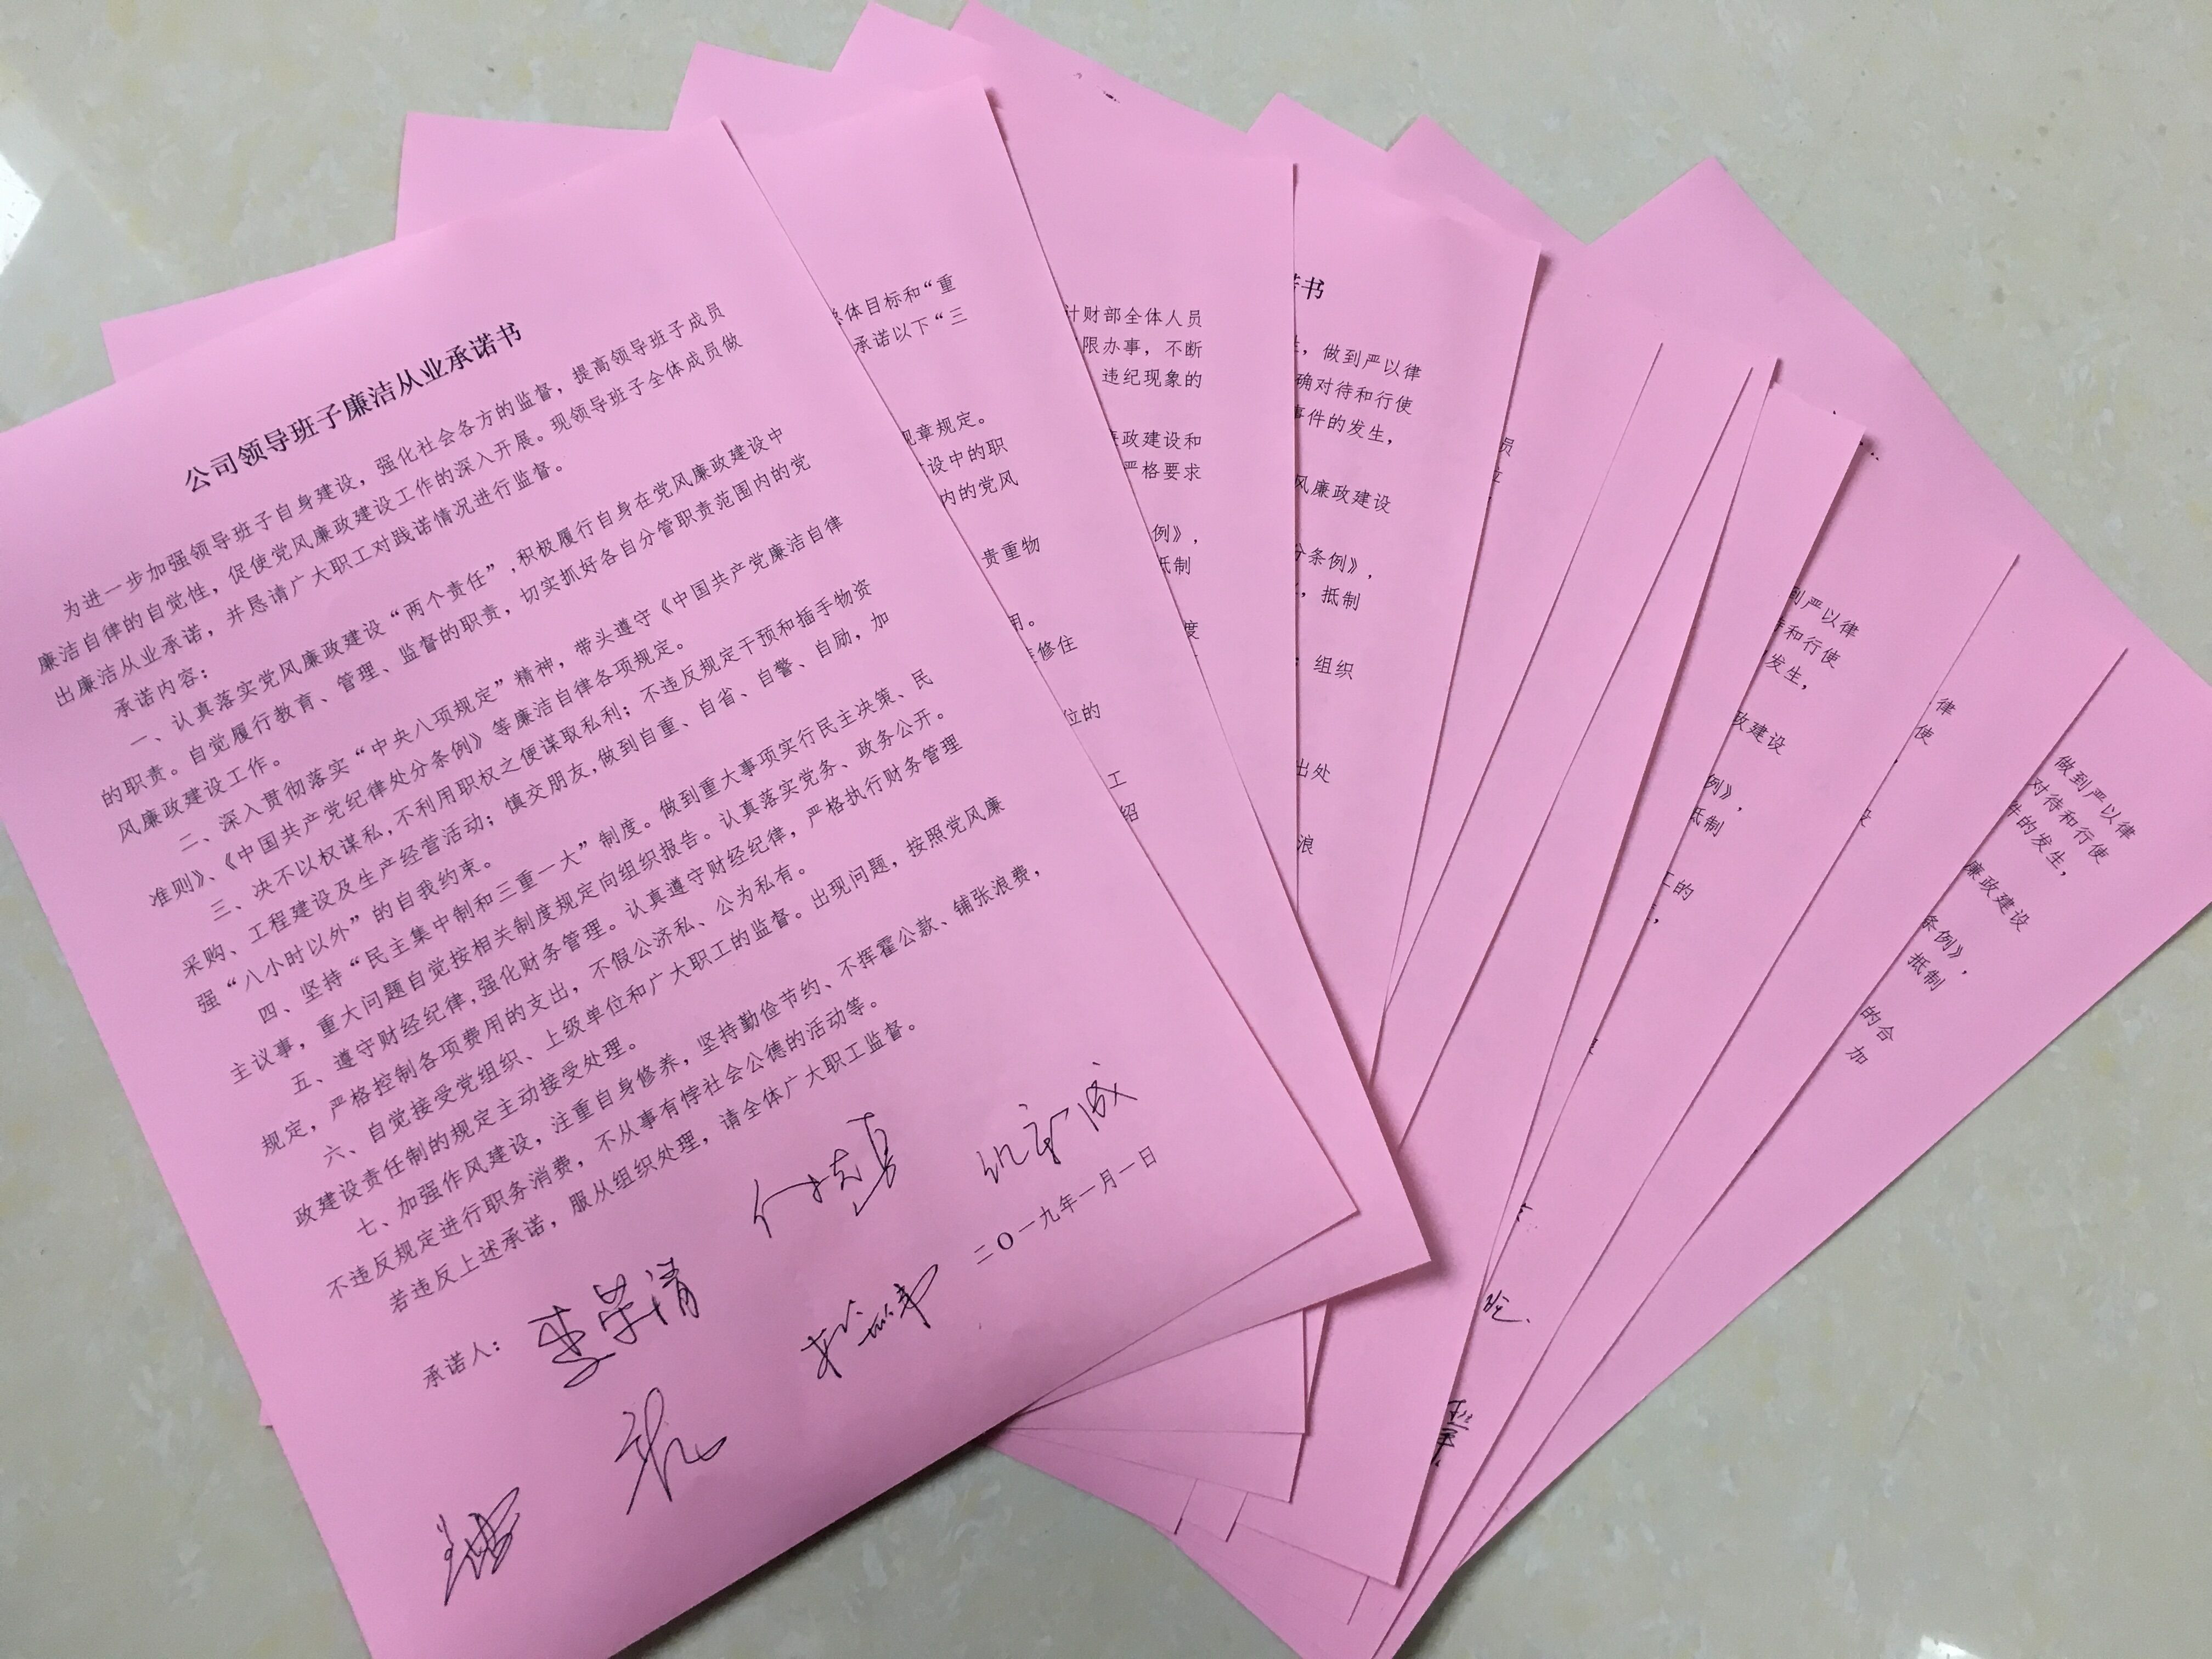 公司领导班子廉洁从业承诺书
为进一步加强领导班子自身建设，强化社会各方的监督，提高领导班子成员
廉洁自律的自觉性，促使党风廉政建设工作的深入开展。现领导班子全体成员做
出廉洁从业承诺，并恳请广大职工对践诺情况进行监督。
承诺内容：
一、认真落实党风廉政建设“两个责任”,积极履行自身在党风廉政建设中
的职责。自觉履行教育、管理、监督的职责，切实抓好各自分管职责范围内的党
风廉政建设工作。
二、深入贯彻落实“中央八项规定”精神，带头遵守《中国共产党廉洁自律
准则》、《中国共产党纪律处分条例》等廉洁自律各项规定。
三、决不以权谋私,不利用职权之便谋取私利；不违反规定干预和插手物资
采购、工程建设及生产经营活动；慎交朋友,做到自重、自省、自警、自励，加
强“八小时以外”的自我约束。
四、坚持“民主集中制和三重一大”制度。做到重大事项实行民主决策、民
主议事，重大问题自觉按相关制度规定向组织报告。认真落实党务、政务公开。
五、遵守财经纪律,强化财务管理。认真遵守财经纪律，严格执行财务管理
规定，严格控制各项费用的支出，不假公济私、公为私有。
六、自觉接受党组织、上级单位和广大职工的监督。出现问题，按照党风廉
政建设责任制的规定主动接受处理。
七、加强作风建设，注重自身修养，坚持勤俭节约、不挥霍公款、铺张浪费，
不违反规定进行职务消费，不从事有悖社会公德的活动等。
若违反上述承诺，服从组织处理，请全体广大职工监督。
承诺人：李荣清
二〇一九年一月一日
总体目标和“重
承诺以下“三
规章规定。
设中的职
内的党风
贵重物
用。
修住
位的
工
绍
计财部全体人员
限办事，不断
违纪现象的
政建设和
严格要求
例》，
抵制
度
书
做到严以律
确对待和行使
事件的发生，
风廉政建设
分条例》，
抵制
组织
出处
浪
员
到严以律
待和行使
发生，
政建设
例》，
抵制
工的
律
使
做到严以律
对待和行使
件的发生，
廉政建设
条例》，
抵制
的合
加